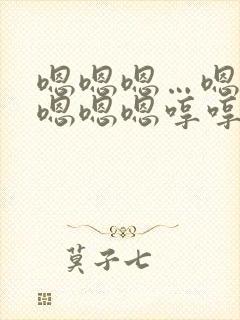 嗯嗯嗯…嗯
嗯嗯嗯哼哼
莫子七